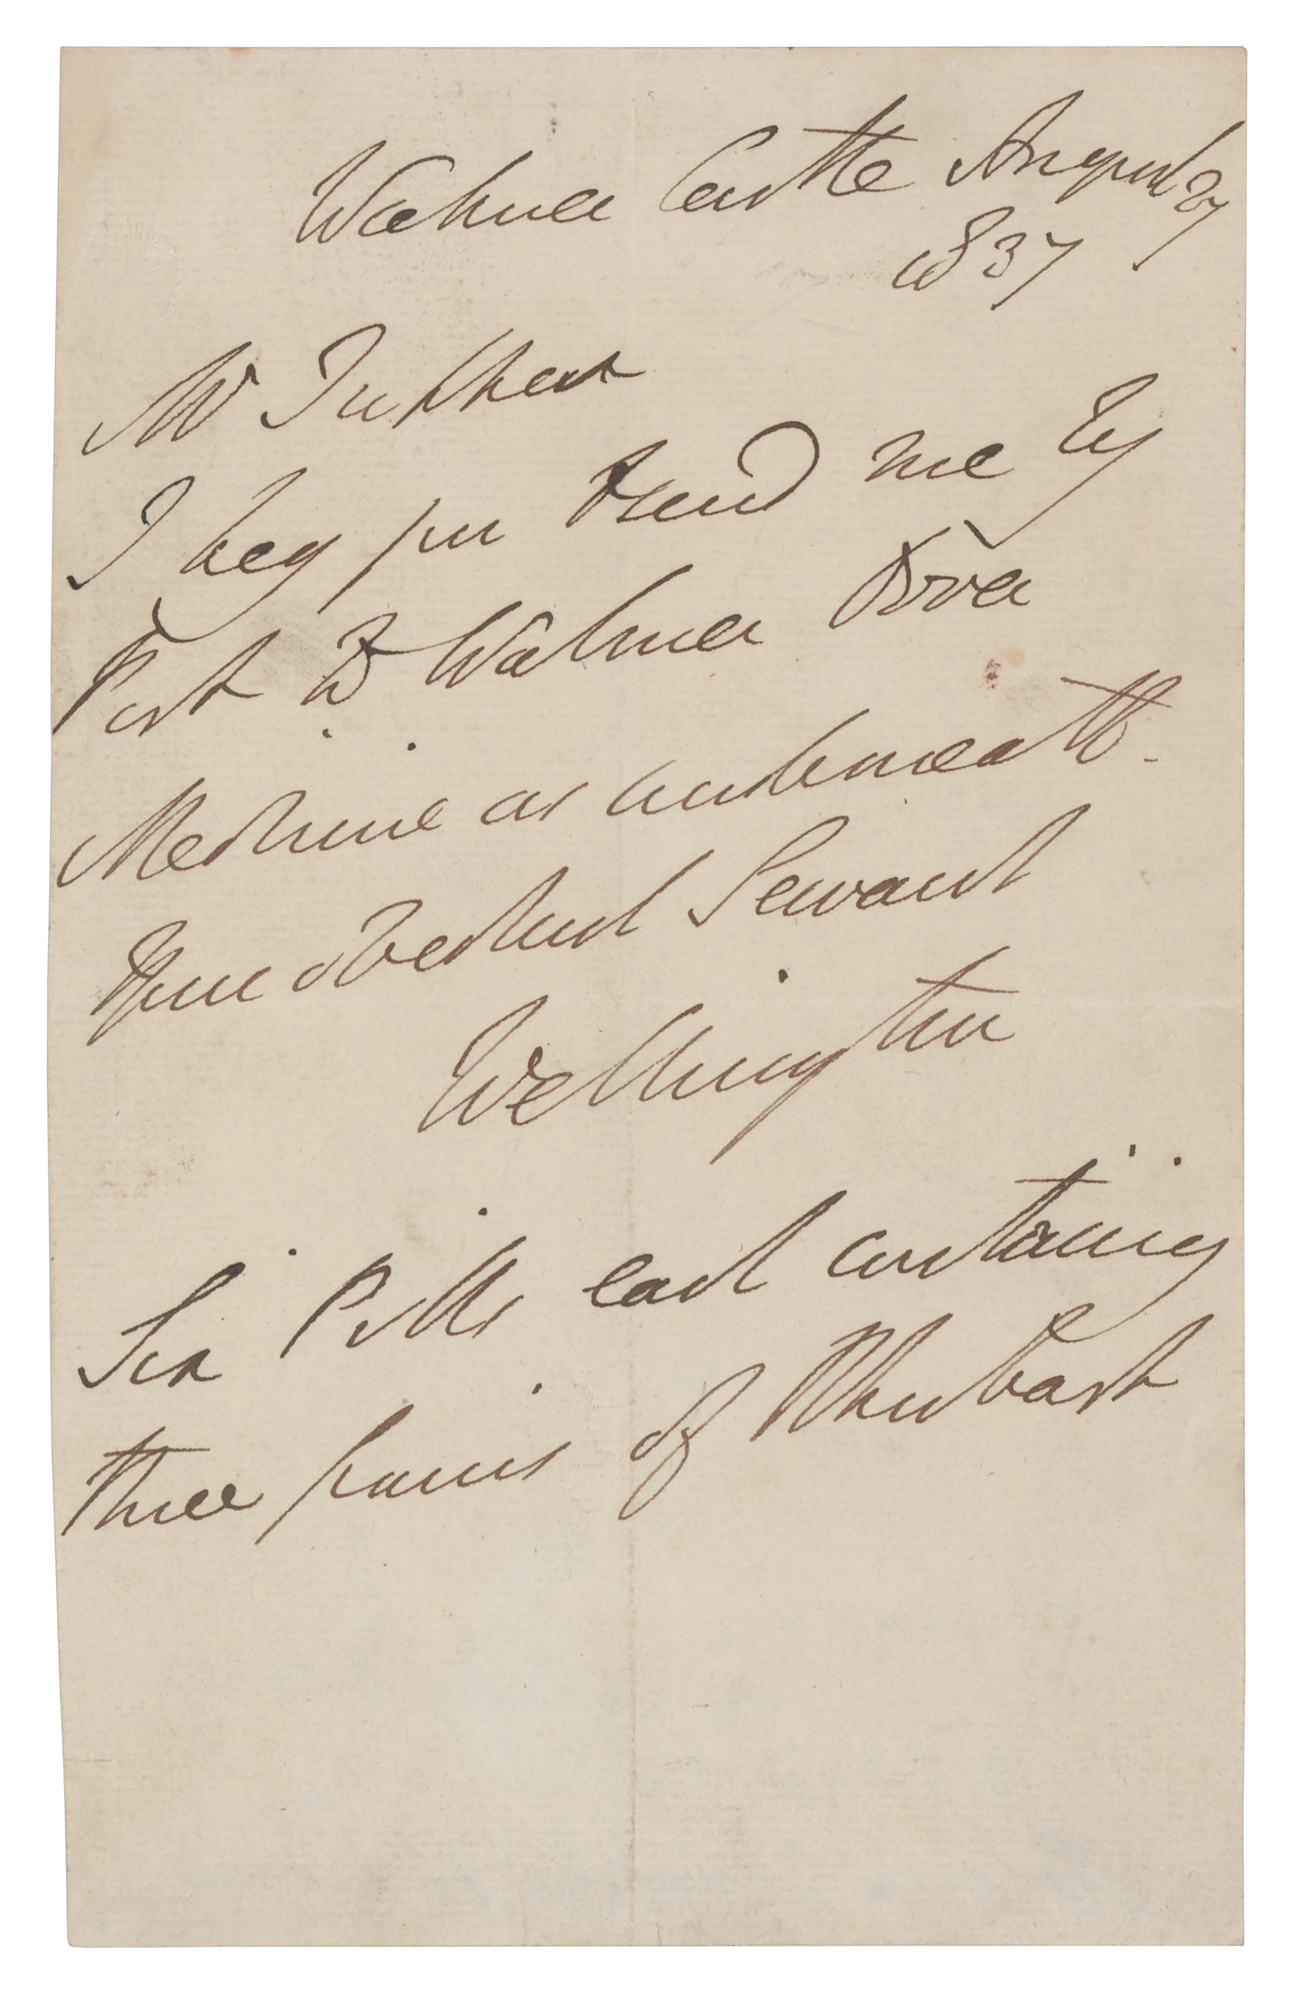 Walmer Castle August 27
1837
Mr
I beg you to send me by
Post to Walmer Dover
Medicine as underneath.
Your obedient Servant
Wellington
Six Pills each containing
three grains of Rhubarb